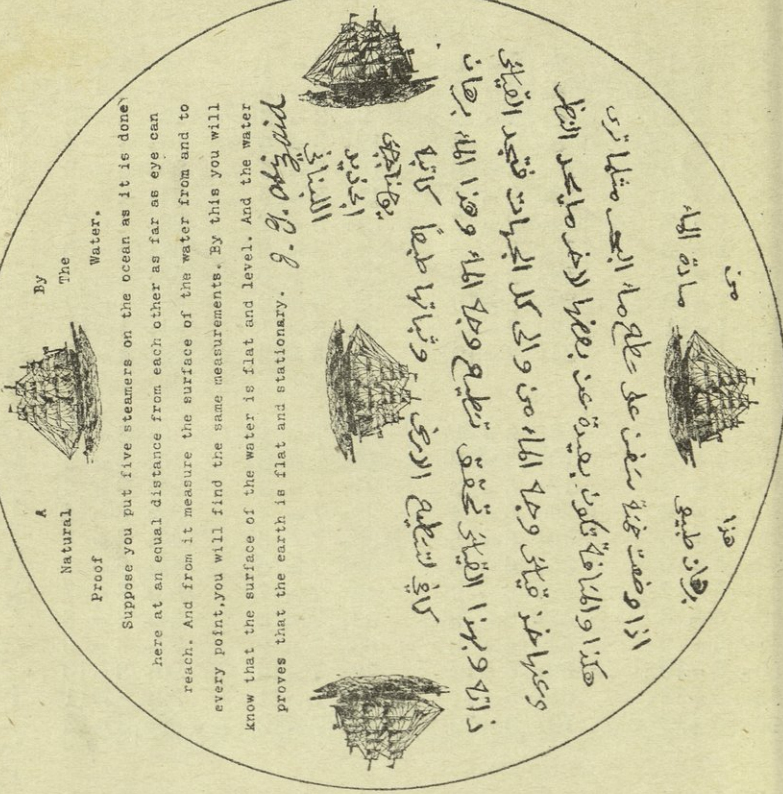 A By
Natural The
Proof Water.
Suppose you put five steamers on the ocean as it is done
here at an equal distance from each other as far as eye can
reach. And from it measure the surface of the water from and to
every point,you will find the same measurements. By this you will
know that the surface of the water is flat and level. And the water
proves that the earth is flat and stationary. J. G. Abizaid
هذا من
برهان طبيعي مادة الماء
اذا وضعت خمسة سفن على سطح ماء البحر مثلما ترى
هكذا والمسافة تكون بعيدة عن بعضها لاخر ما يحد النظر
وعنها خذ قياس وجه الماء من والى كل الجهات فتجد القياس
ذاته وبهذا القياس تحقق تسطيح وجه الماء وهذا الماء برهان
كافي لتسطيح الارض وثباتها طبعا كاتبه
اللبناني